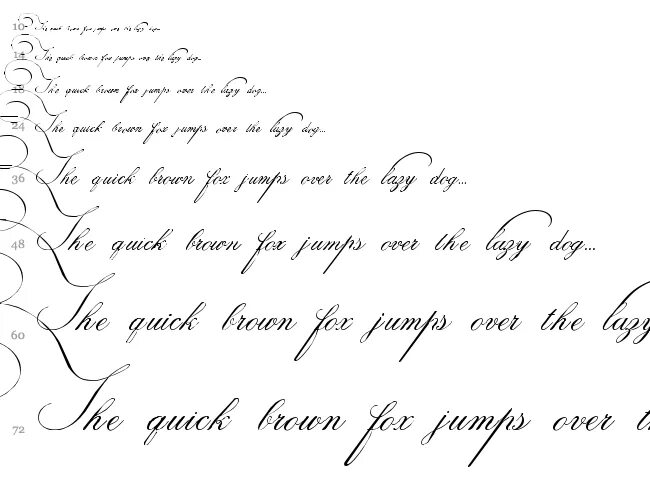 10 The quick brown fox jumps over the lazy dog...
14 The quick brown fox jumps over the lazy dog...
18 The quick brown fox jumps over the lazy dog...
24 The quick brown fox jumps over the lazy dog...
36 The quick brown fox jumps over the lazy dog...
48 The quick brown fox jumps over the lazy dog...
60 The quick brown fox jumps over the lazy
72 The quick brown fox jumps over